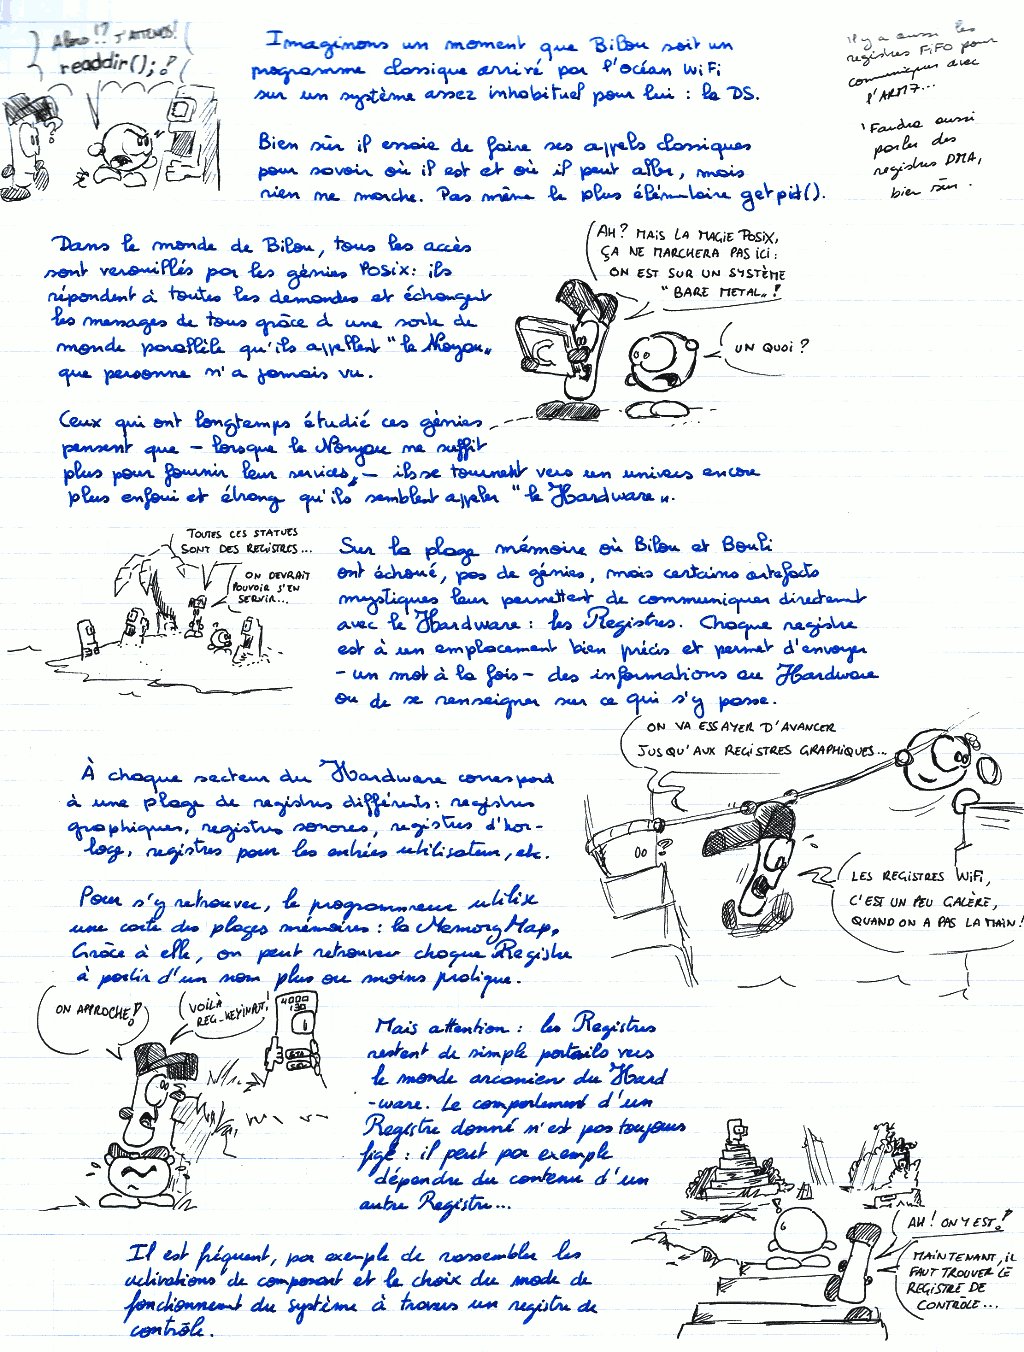 Alors!? J'attends!
readdir();!
Imaginons un moment que Bilou soit un
programme classique arrivé par l'océan WiFi
sur un système assez inhabituel pour lui : la DS.
Il y a aussi les
registres FiFO pour
communiquer avec
l'ARM7...
'Faudra aussi
parler des
registres DMA,
bien sûr.
Bien sûr il essaie de faire ses appels classiques
pour savoir où il est et où il peut aller, mais
rien ne marche. Pas même le plus élémentaire getpid().
Dans le monde de Bilou, tous les accès
sont verouillés par les génies POSIX: ils
répondent à toutes les demandes et échangent
les messages de tous grâce à une sorte de
monde parallèle qu'ils appellent "le Noyau"
que personne n'a jamais vu.
AH? MAIS LA MAGIE POSIX,
ÇA NE MARCHERA PAS ICI:
ON EST SUR UN SYSTÈME
"BARE METAL"!
UN QUOI?
Ceux qui ont longtemps étudié ces génies
pensent que – lorsque le Noyau ne suffit
plus pour fournir leur services, – ils se tournent vers un univers encore
plus enfoui et étrang qu'ils semblent appeler "le Hardware".
TOUTES CES STATUES
SONT DES REGISTRES...
ON DEVRAIT
POUVOIR S'EN
SERVIR...
Sur la plage mémoire où Bilou et Bouli
ont échoué, pas de génies, mais certains artefacts
mystiques leur permettent de communiquer directement
avec le Hardware : les Registres. Chaque registre
est à un emplacement bien précis et permet d'envoyer
- un mot à la fois - des informations au Hardware
ou de se renseigner sur ce qui s'y passe.
ON VA ESSAYER D'AVANCER
JUSQU'AUX REGISTRES GRAPHIQUES...
À chaque secteur du Hardware correspond
à une plage de registres différents: registres
graphiques, registres sonores, registres d'hor-
loge, registres pour les entrées utilisateur, etc.
?
LES REGISTRES WiFi,
C'EST UN PEU GALÈRE,
QUAND ON A PAS LA MAIN!
Pour s'y retrouver, le programmeur utilise
une carte des plages mémoires : la MemoryMap.
Grâce à elle, on peut retrouver chaque Registre
à partir d'un nom plus ou moins pratique.
ON APPROCHE?!
VOILÀ
REG_KEYINPUT!
4000
130
Mais attention : les Registres
restent de simple portails vers
le monde arcanien du Hard
-ware. Le comportement d'un
Registre donné n'est pas toujours
figé : il peut par exemple
dépendre du contenu d'un
autre Registre...
AH! ON Y EST!
MAINTENANT, IL
FAUT TROUVER LE
REGISTRE DE
CONTRÔLE...
Il est fréquent, par exemple de rassembler les
activations de composant et le choix du mode de
fonctionnement du système à travers un registre de
contrôle.